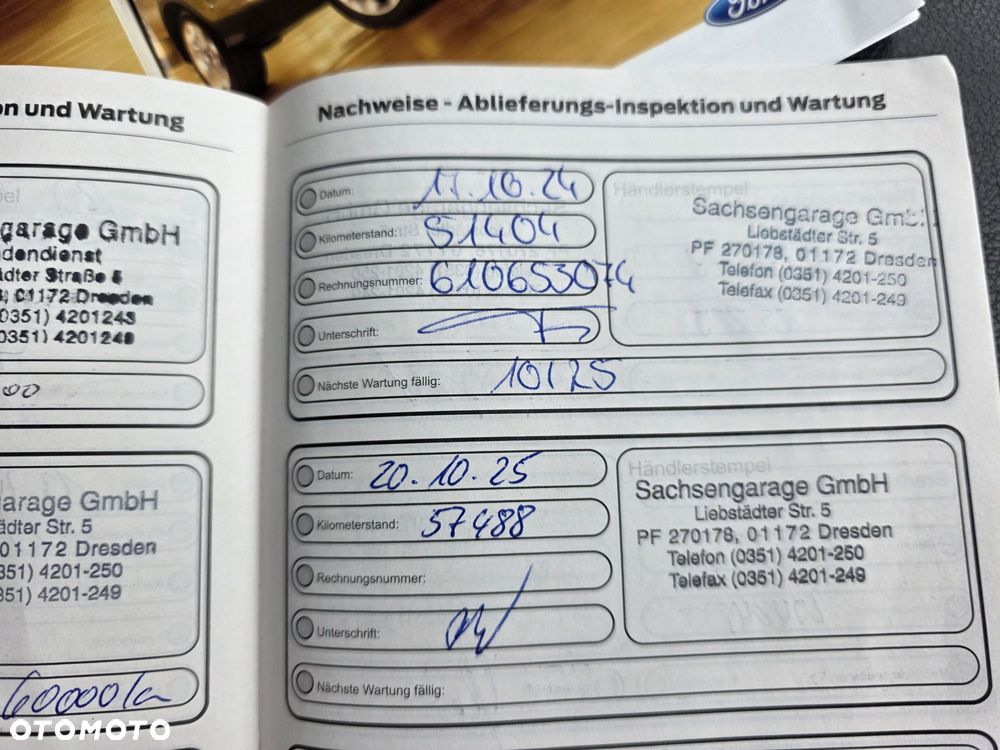 Ford
on und Wartung
garage GmbH
dendienst
ädter Straße 6
, 01172 Dresden
0351) 4201243
0351) 4201248
00
garage GmbH
ädter Str. 5
01172 Dresden
351) 4201-250
351) 4201-249
60000km
Nachweise - Ablieferungs-Inspektion und Wartung
Datum: 17.10.24
Kilometerstand: 51404
Rechnungsnummer: 610653074
Unterschrift:
Nächste Wartung fällig: 10/25
Händlerstempel
Sachsengarage GmbH
Liebstädter Str. 5
PF 270178, 01172 Dresden
Telefon (0351) 4201-250
Telefax (0351) 4201-249
Datum: 20.10.25
Kilometerstand: 57488
Rechnungsnummer:
Unterschrift:
Nächste Wartung fällig:
Händlerstempel
Sachsengarage GmbH
Liebstädter Str. 5
PF 270178, 01172 Dresden
Telefon (0351) 4201-250
Telefax (0351) 4201-249
OTOMOTO